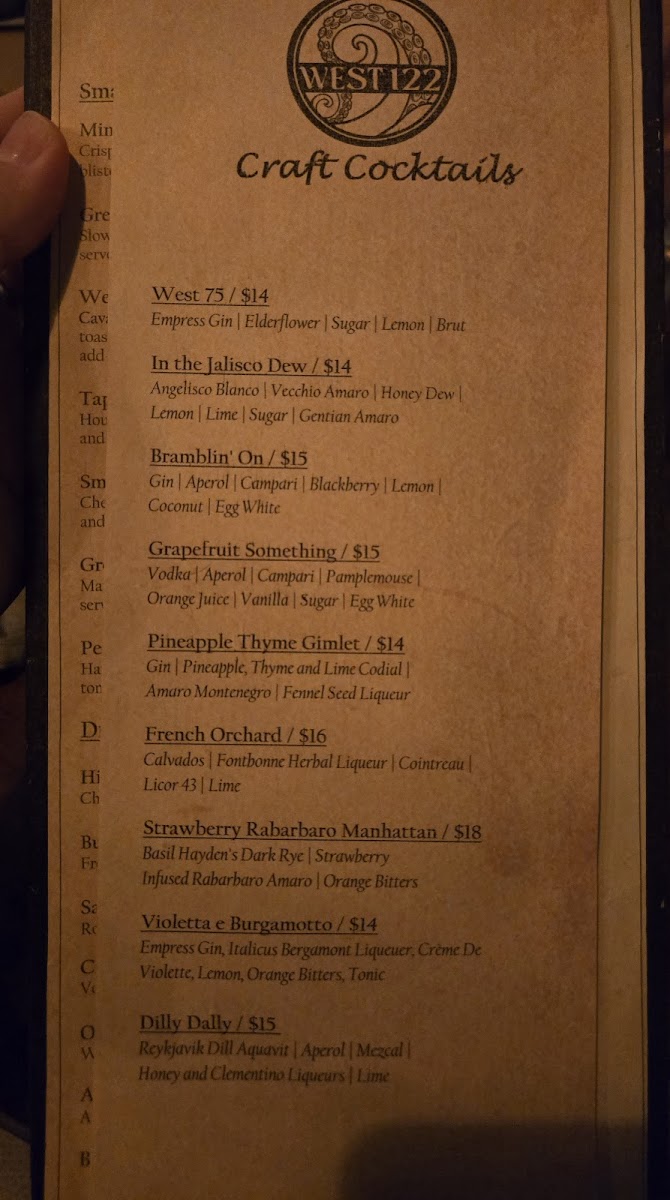 WEST 122
Craft Cocktails
West 75 / $14
Empress Gin | Elderflower | Sugar | Lemon | Brut
In the Jalisco Dew / $14
Angelisco Blanco | Vecchio Amaro | Honey Dew |
Lemon | Lime | Sugar | Gentian Amaro
Bramblin' On / $15
Gin | Aperol | Campari | Blackberry | Lemon |
Coconut | Egg White
Grapefruit Something / $15
Vodka | Aperol | Campari | Pamplemouse |
Orange Juice | Vanilla | Sugar | Egg White
Pineapple Thyme Gimlet / $14
Gin | Pineapple, Thyme and Lime Codial |
Amaro Montenegro | Fennel Seed Liqueur
French Orchard / $16
Calvados | Fontbonne Herbal Liqueur | Cointreau |
Licor 43 | Lime
Strawberry Rabarbaro Manhattan / $18
Basil Hayden's Dark Rye | Strawberry
Infused Rabarbaro Amaro | Orange Bitters
Violetta e Burgamotto / $14
Empress Gin, Italicus Bergamont Liqueuer, Crème De
Violette, Lemon, Orange Bitters, Tonic
Dilly Dally / $15
Reykjavik Dill Aquavit | Aperol | Mezcal |
Honey and Clementino Liqueurs | Lime